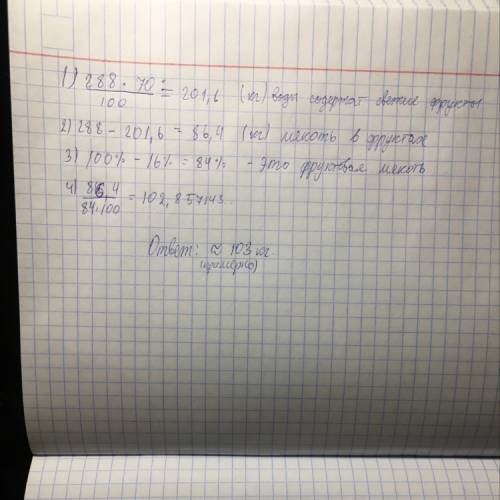 1) 288 · 70 / 100 = 201,6 (кг) воды содержат свежие фрукты
2) 288 - 201,6 = 86,4 (кг) мякоть в фруктах
3) 100% - 16% = 84% - Это фруктовая мякоть
4) 86,4 / 84·100 = 102,857143..
Ответ: ≈ 103 кг
(примерно)